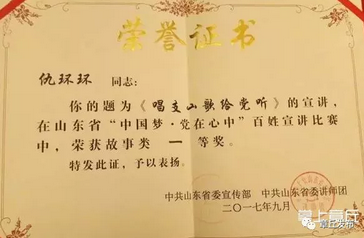 荣誉证书
仇环环 同志:
你的题为《唱支山歌给党听》的宣讲,
在山东省“中国梦·党在心中”百姓宣讲比赛
中,荣获故事类 一 等奖。
特发此证,予以表扬。
中共山东省委宣传部 中共山东省委讲师团
二〇一七年九月
掌上章丘
章丘发布